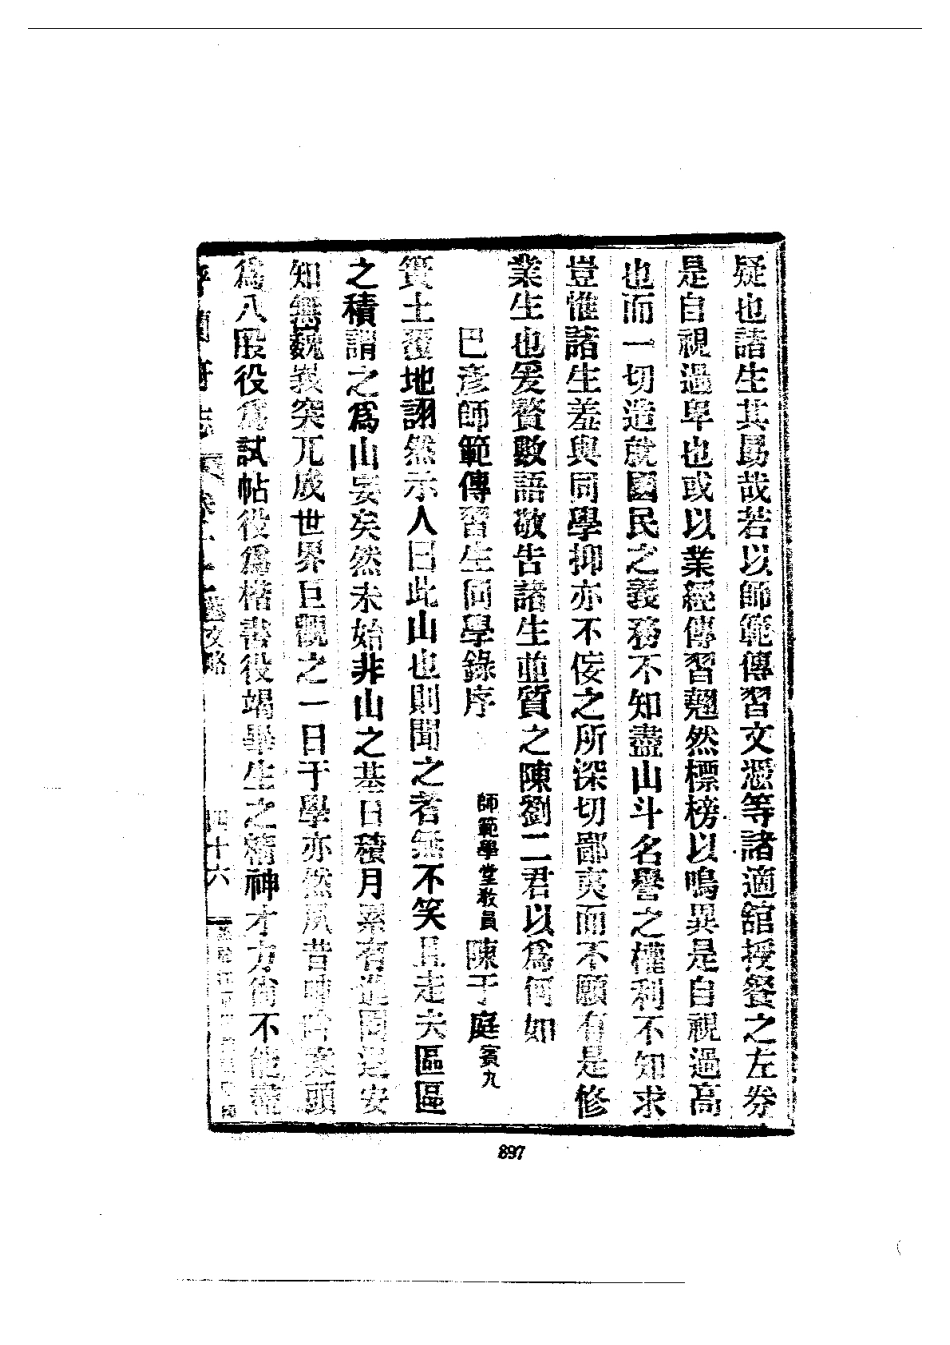 疑也諸生其勗哉若以師範傳習文憑等諸適舘授餐之左券
是自視過卑也或以業經傳習翹然標榜以鳴異是自視過高
也而一切造就國民之義務不知盡山斗名譽之權利不知求
豈惟諸生羞與同學抑亦不佞之所深切鄙夷而不願有是修
業生也爰贅數語敬告諸生並質之陳劉二君以爲何如
巴彥師範傳習生同學錄序 師範學堂教員 陳于庭 賓九
簣土覆地詡然示人曰此山也則聞之者無不笑且走夫區區
之積謂之爲山妄矣然未始非山之基日積月累有進罔退安
知巍峩突兀成世界巨觀之一日于學亦然夙昔時案頭
爲八股役爲試帖役爲楷書役竭畢生之精神才力尙不能盡
呼蘭府志 藝文略 四十六
897